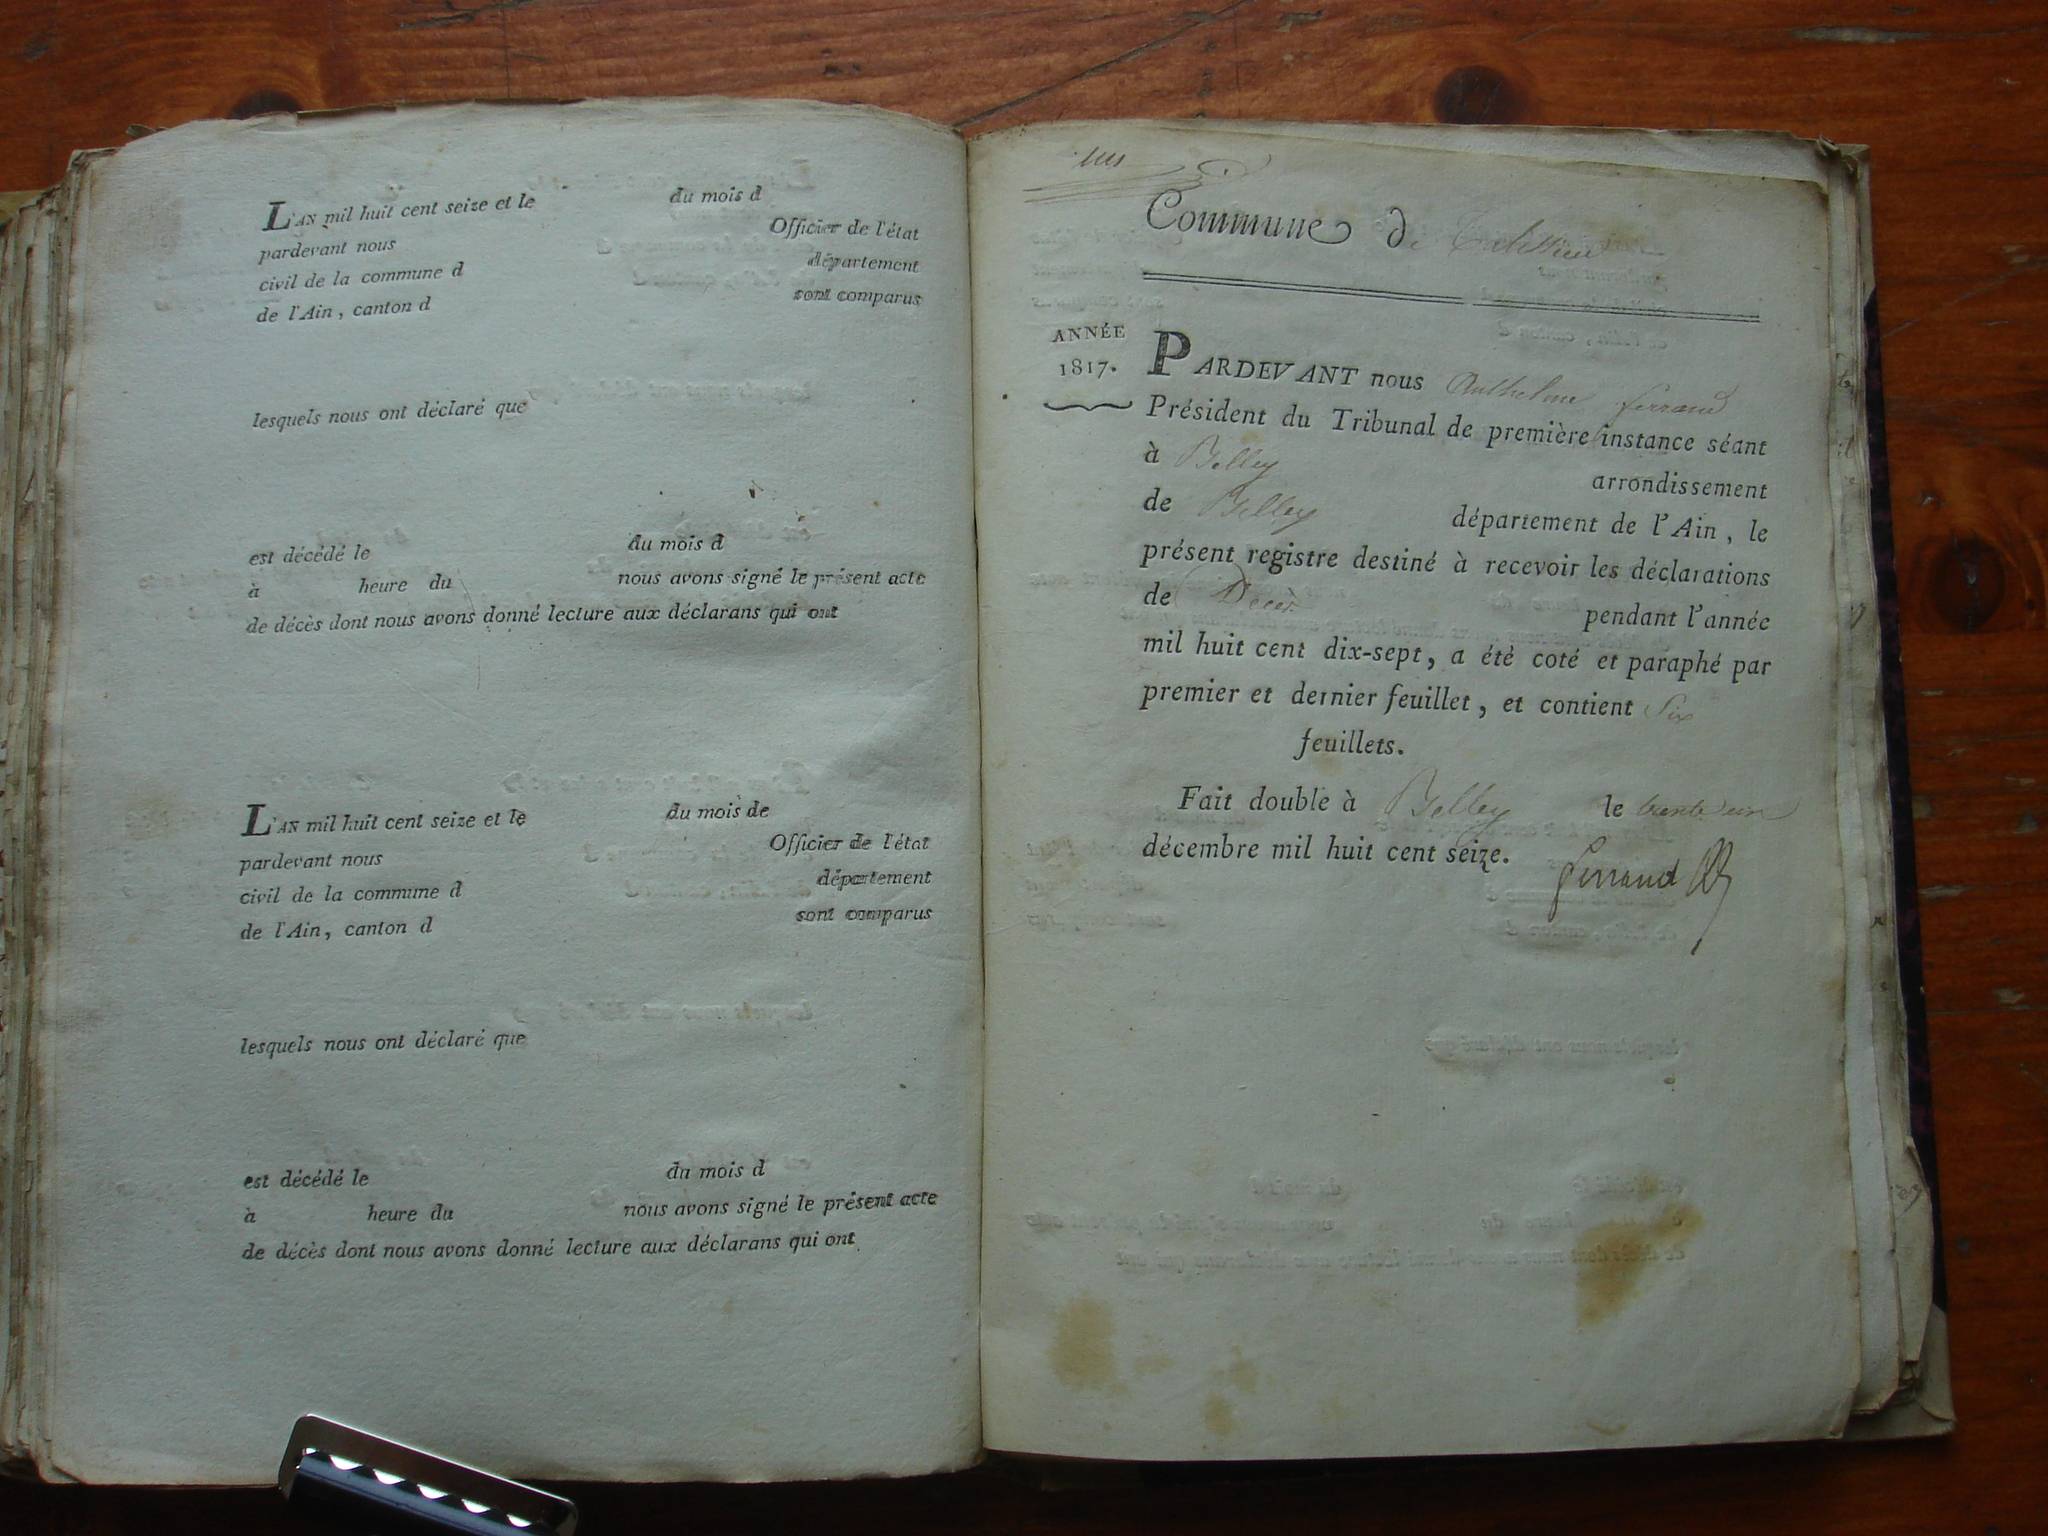 L'AN mil huit cent seize et le du mois d
pardevant nous Officier de l'état
civil de la commune d département
de l'Ain, canton d sont comparus
lesquels nous ont déclaré que
est décédé le du mois d
à heure du nous avons signé le présent acte
de décès dont nous avons donné lecture aux déclarans qui ont
L'AN mil huit cent seize et le du mois de
pardevant nous Officier de l'état
civil de la commune d département
de l'Ain, canton d sont comparus
lesquels nous ont déclaré que
est décédé le du mois d
à heure du nous avons signé le présent acte
de décès dont nous avons donné lecture aux déclarans qui ont
Commune de
ANNÉE
1817.
PARDEVANT nous Anthelme ferrand
Président du Tribunal de première instance séant
à Belley arrondissement
de Belley département de l'Ain, le
présent registre destiné à recevoir les déclarations
de Décès pendant l'année
mil huit cent dix-sept, a été coté et paraphé par
premier et dernier feuillet, et contient Six
feuillets.
Fait double à Belley le trente un
décembre mil huit cent seize.
ferrand